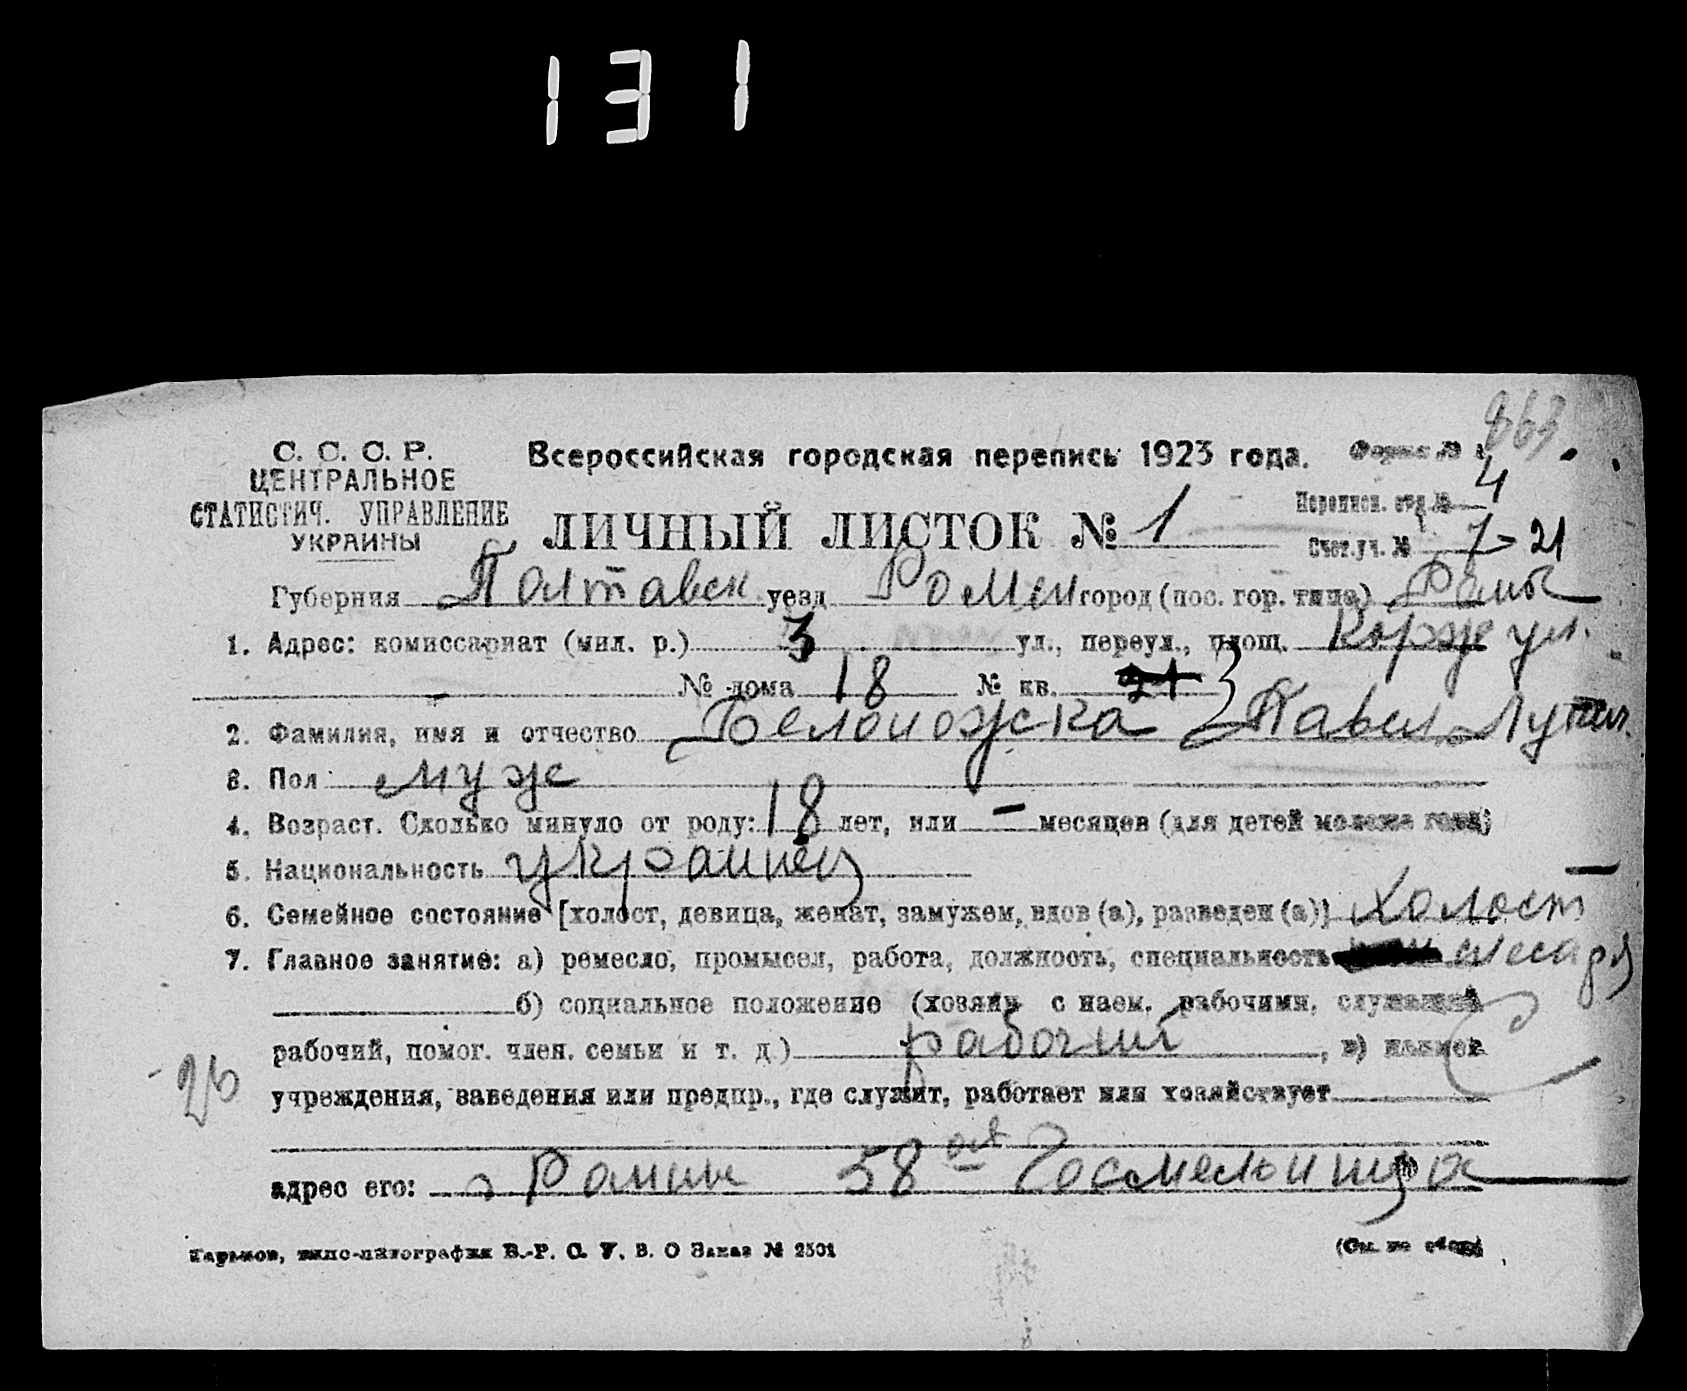 131
863.
С. С. С. Р.
ЦЕНТРАЛЬНОЕ
СТАТИСТИЧ. УПРАВЛЕНИЕ
УКРАИНЫ
Всероссийская городская перепись 1923 года.
Форма №
Переписн. отд. № 4
ЛИЧНЫЙ ЛИСТОК № 1
Счет. уч. № 7-21
Губерния Полтавск уезд Ромен город (пос. гор. типа) Ромны
1. Адрес: комиссариат (мил. р.) 3 ул., переул., площ. Корж ул.
№ дома 18 № кв. 21
2. Фамилия, имя и отчество Белоножска Павел
3. Пол муж
4. Возраст. Сколько минуло от роду: 18 лет, или – месяцев (для детей моложе года)
5. Национальность украинец
6. Семейное состояние [холост, девица, женат, замужем, вдов (а), разведен (а)] холост
7. Главное занятие: а) ремесло, промысел, работа, должность, специальность слесарь
б) социальное положение (хозяин с наем. рабочими, служащий
рабочий, помог. член. семьи и т. д.) рабочий, в) наимен.
26
учреждения, заведения или предпр., где служит, работает или хозяйствует
адрес его: г Ромны 58 ая Госмельница
Харьков, типо-литография В.-Р. С. У. В. О Заказ № 2501
(См. на обор.)